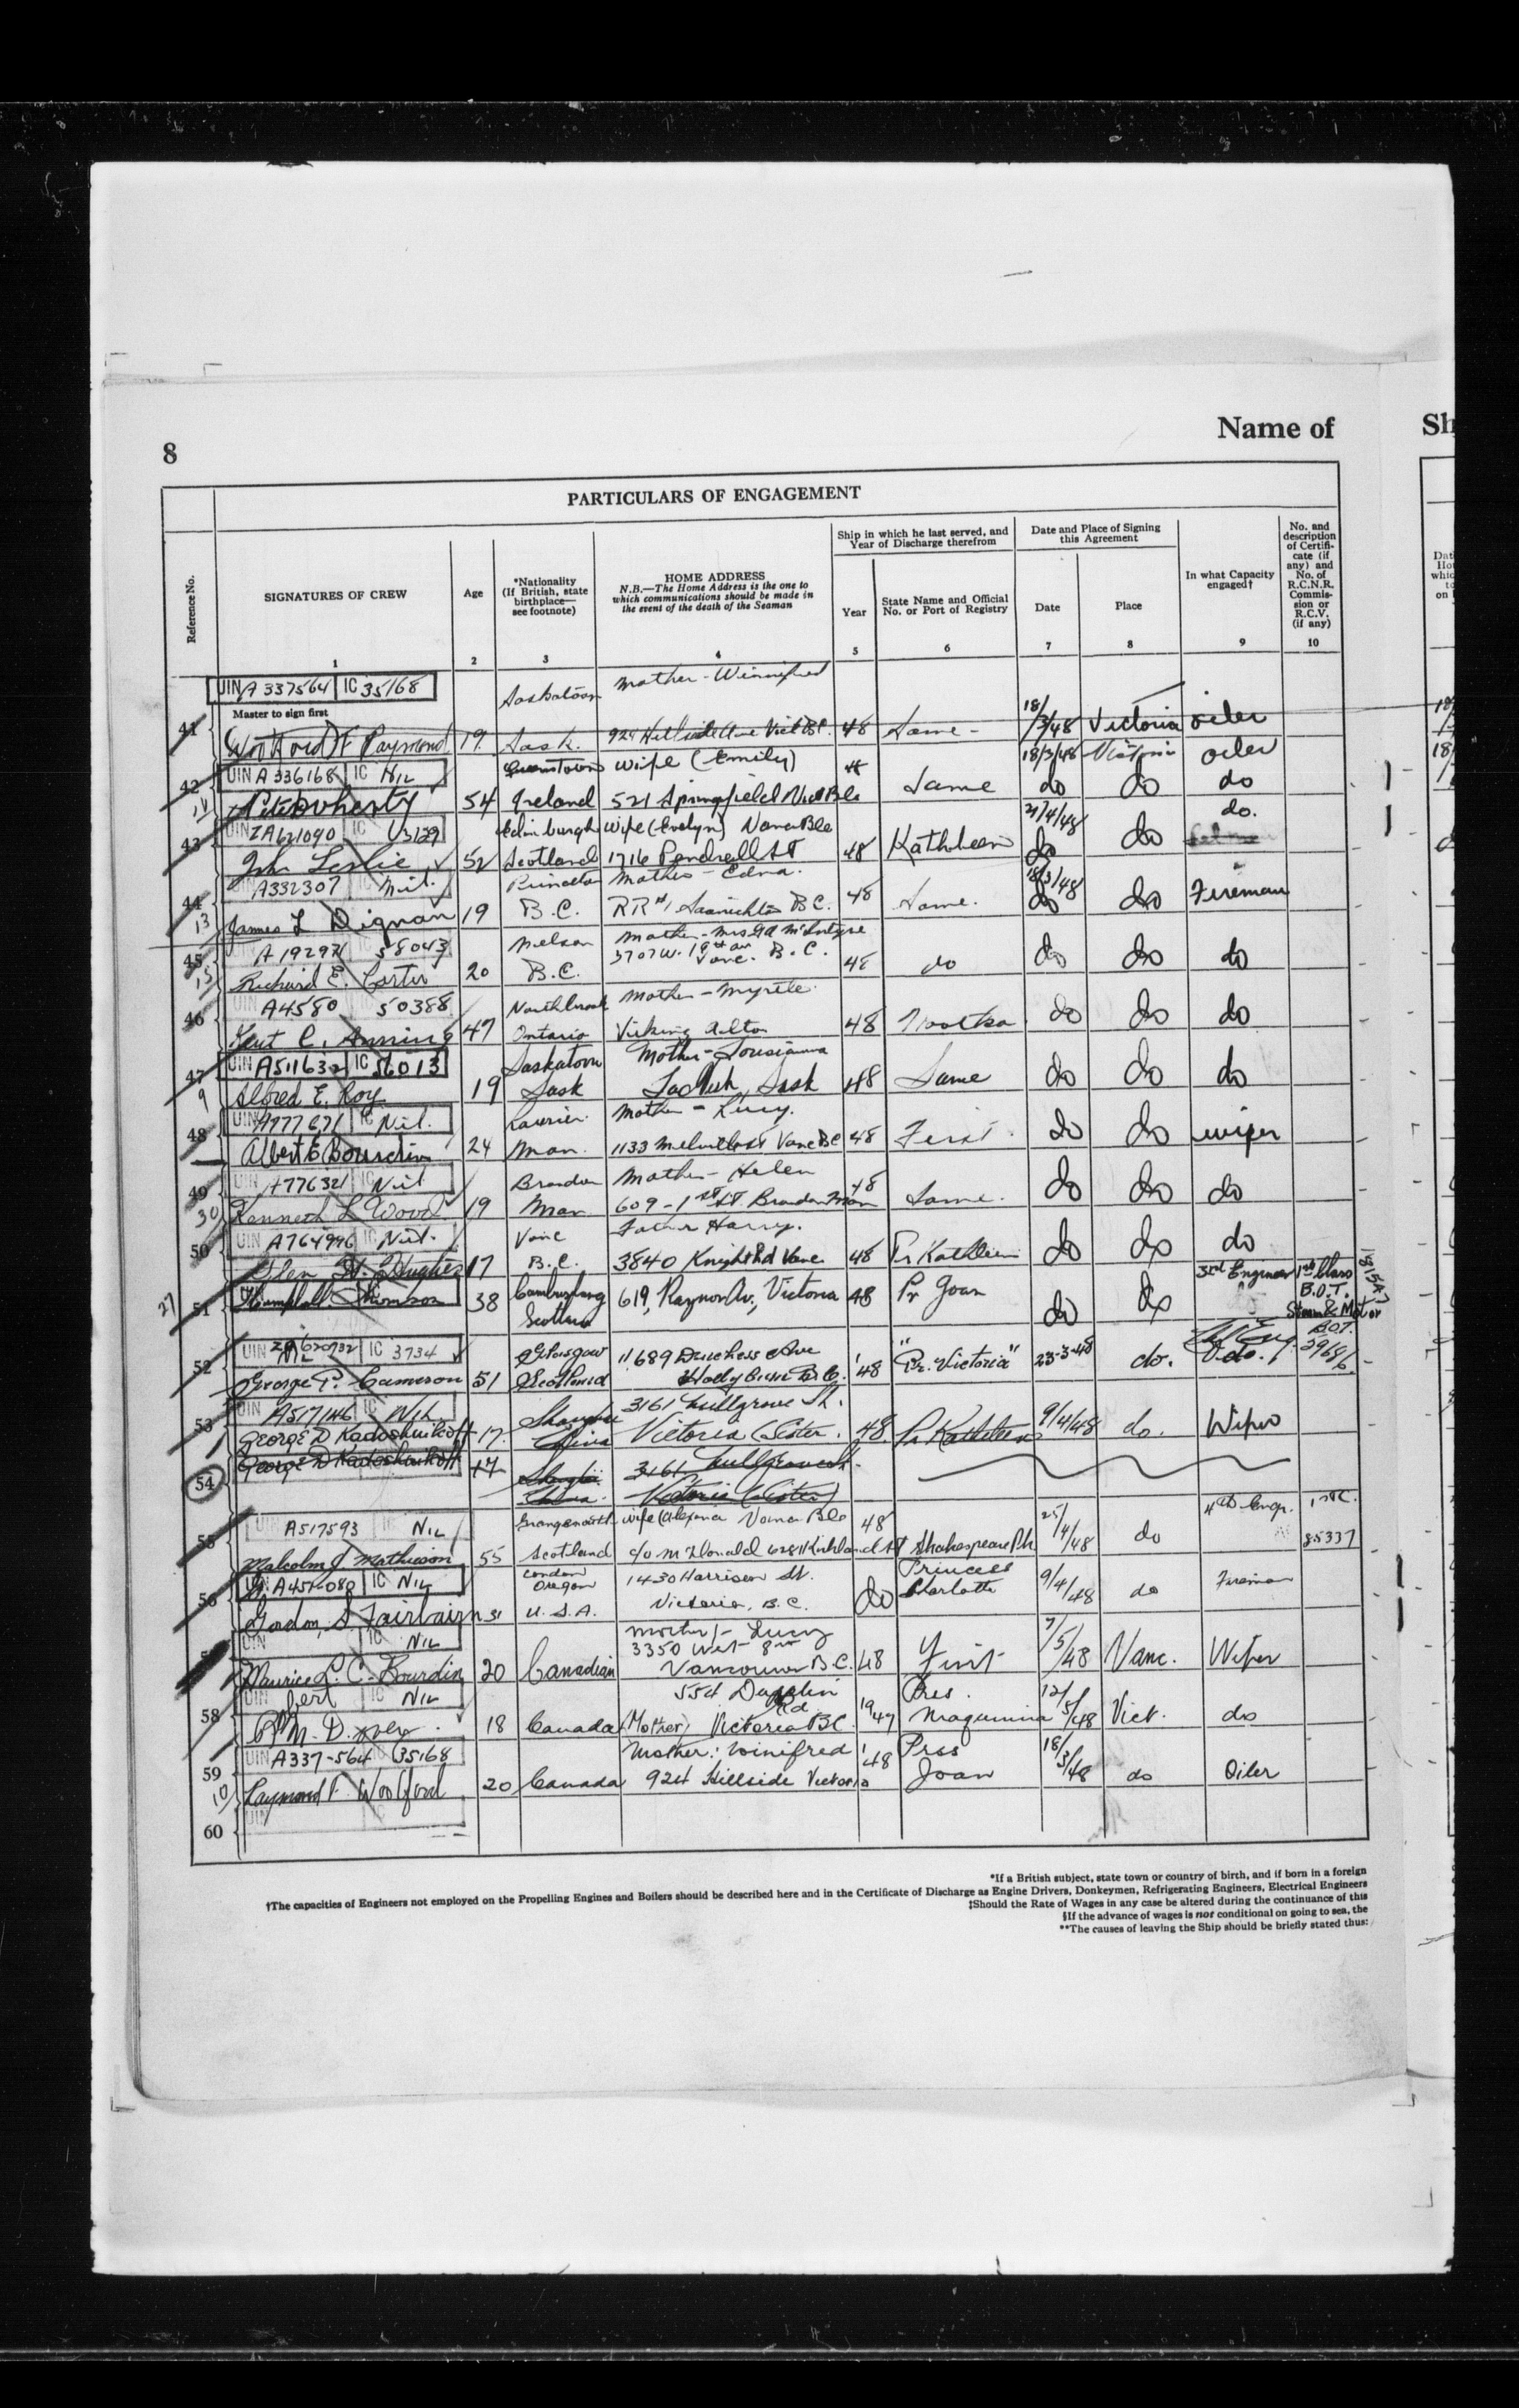 8
Name of
Sh
PARTICULARS OF ENGAGEMENT
Reference No.
SIGNATURES OF CREW
Age
*Nationality
(If British, state
birthplace—
see footnote)
HOME ADDRESS
N.B.—The Home Address is the one to
which communications should be made in
the event of the death of the Seaman
Ship in which he last served, and
Year of Discharge therefrom
Year
State Name and Official
No. or Port of Registry
Date and Place of Signing
this Agreement
Date
Place
In what Capacity
engaged†
No. and
description
of Certifi-
cate (if
any) and
No. of
R.C.N.R.
Commis-
sion or
R.C.V.
(if any)
1 2 3 4 5 6 7 8 9 10
UIN A 337564 IC 35168 Saskatoon Mother - Winnifred
Master to sign first
41 Woolford F Raymond 19 Sask. 924 Hillside Ave Vict BC. 48 Same - 18/3/48 Victoria oiler
UIN A 336168 IC NIL Queenstown wife (Emily) 48 18/3/48 Victoria oiler
42 Doherty 54 Ireland 521 Springfield Vict BC Same do do do
UIN ZA621090 IC 3129 Edinburgh Wife (Evelyn) Vanc BC 21/4/48 do.
43 Jhn Leslie 52 Scotland 1716 Pendrell St 48 Kathleen do do
A332307 Nil. Princeton Mother - Edna. 18/3/48
44 13 James L Dignan 19 B.C. RR #1 Saanichton BC. 48 Same. do do Fireman
A 19297 58043 Nelson Mother - Mrs G A McIntyre
45 15 Richard E. Carter 20 B.C. 3707 W. 19th av Vanc. B.C. 48 do do do do
UIN A4580 50388 Northbrook Mother - Myrtle
46 Kent C. Anning 47 Ontario Viking Alta 48 Nootka do do do
UIN A511632 IC 56013 Saskatoon Mother - Louisianna
47 9 Alfred E. Roy 19 Sask Sask 48 Same do do do
UIN A777671 IC Nil. Laurier Mother - Lucy.
48 Albert E Bourdin 24 Man. 1133 Melville St Vanc BC 48 First do do wiper
UIN A776321 IC Nil Brandon Mother - Helen
49 30 Kenneth L Wood 19 Man 609 - 1st St Brandon Man 48 Same. do do do
UIN A764996 IC Nil. Vanc Father Harry.
50 Glen H. Hughes 17 B.C. 3840 Knight Rd Vanc 48 Pr Kathleen do do do
27 51 Campbell Thomson 38 Cambuslang Scotland 619, Raynor Av., Victoria 48 Pr Joan do do 3rd Engineer 1st Class B.O.T. Steam & Motor
UIN IC 3734 Glasgow 689 Duchess Ave B.O.T.
52 George P. Cameron 51 Scotland Holly burn B.C. '48 "Pr. Victoria" 23-3-48 do. do.
UIN A517146 IC NIL Shanghai 3161 Millgrove St.
53 George D Kadoshnikoff 17. China Victoria (Sister. 48. Pr Kathleen 9/4/48 do. Wiper
54 George D Kadoshnikoff 17 Shanghai China. 3161 Millgrove St. Victoria (Sister)
A517593 NIL wife (Vanc BC 48 25/4/48 4th Engr.
55 Malcolm J Mathieson 55 Scotland c/o McDonald 6281 Kirkland St Shakespeare Pk do 85337
UIN A451-080 IC NIL London Oregon 1430 Harrison St. Princess
56 Gordon S. Fairbairn 31 U.S.A. Victoria, B.C. do Charlotte 9/4/48 do Fireman
UIN IC NIL Mother - Lucy 3350 West 8th
Maurice L. C. Bourdin 20 Canadian Vancouver B.C. 48 First 7/5/48 Vanc. Wiper
UIN IC NIL 554 Dupplin Rd
58 18 Canada (Mother) Victoria BC. 1947 Pres. Maquinna 12/5/48 Vict. do
UIN A337-564 35168 Mother: Winifred
59 10 Raymond F Woolford 20 Canada 924 Hillside Victoria '48 Prss Joan 18/3/48 do Oiler
60 UIN
*If a British subject, state town or country of birth, and if born in a foreign
†The capacities of Engineers not employed on the Propelling Engines and Boilers should be described here and in the Certificate of Discharge as Engine Drivers, Donkeymen, Refrigerating Engineers, Electrical Engineers
‡Should the Rate of Wages in any case be altered during the continuance of this
§If the advance of wages is not conditional on going to sea, the
**The causes of leaving the Ship should be briefly stated thus: